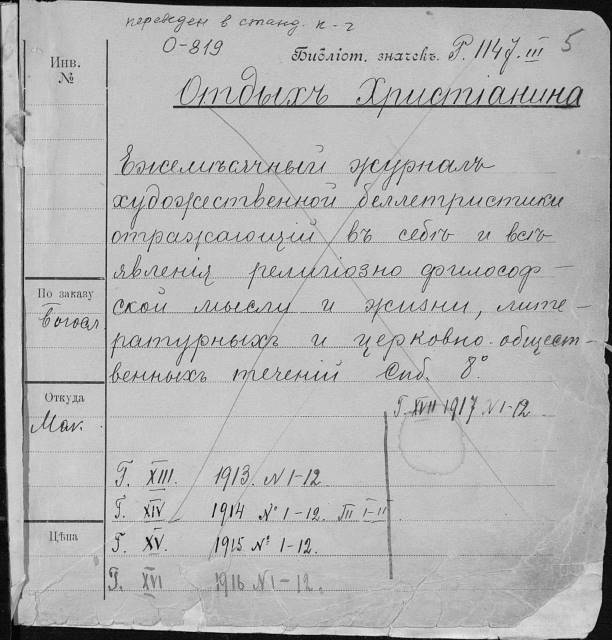 переведен в станд. к-г
О-819
Библіот. значекъ. Р. 1147. III 5
Инв.
№
Отдыхъ Христіанина
Ежемѣсячный журналъ
художественной беллетристики
отражающій въ себѣ и всѣ
явленія религіозно философ-
По заказу
Богосл.
ской мысли и жизни, лите-
ратурныхъ и церковно-общест-
венныхъ теченій Спб. 8°.
Откуда
Мак.
Г. XVII 1917 N 1-12
Г. XIII. 1913. N 1-12
Г. XIV 1914 № 1-12. III I-II
Цѣна
Г. XV. 1915 № 1-12.
Г. XVI 1916 N 1-12.